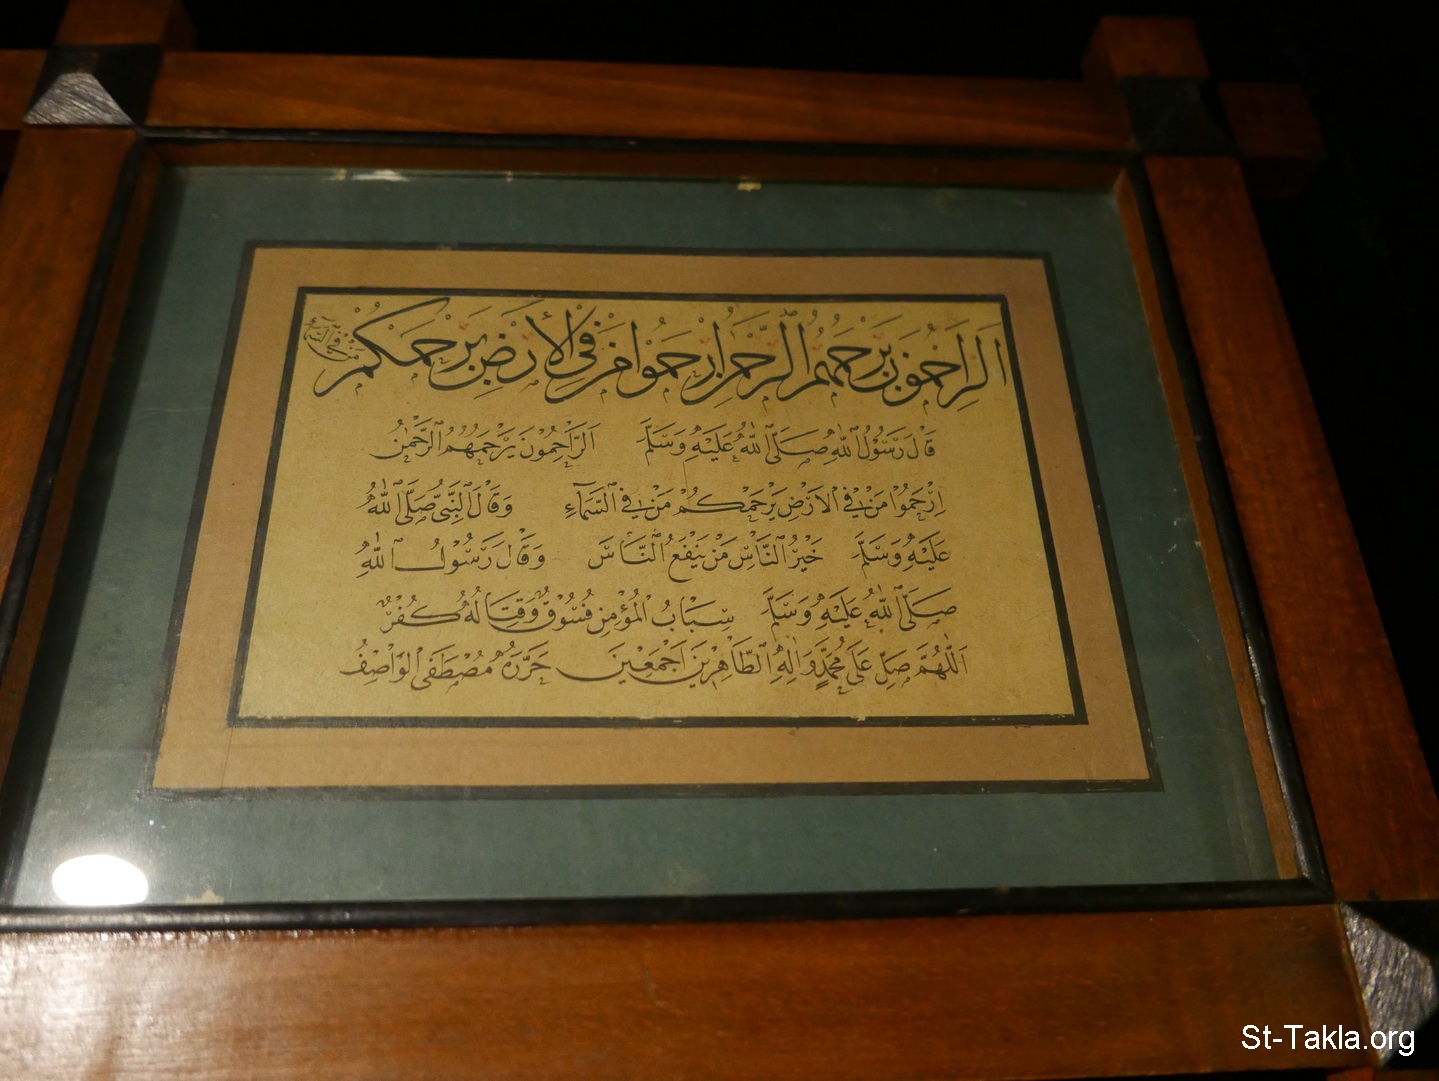 الرَّاحِمُونَ يَرْحَمُهُمُ الرَّحْمٰنُ ارْحَمُوا مَنْ فِي الْأَرْضِ يَرْحَمْكُمْ
مَنْ فِي السَّمَاءِ
قَالَ رَسُولُ اللّٰهِ صَلَّى اللّٰهُ عَلَيْهِ وَسَلَّمَ الرَّاحِمُونَ يَرْحَمُهُمُ الرَّحْمٰنُ
اِرْحَمُوا مَنْ فِي الْأَرْضِ يَرْحَمْكُمْ مَنْ فِي السَّمَاءِ وَقَالَ النَّبِيُّ صَلَّى اللّٰهُ
عَلَيْهِ وَسَلَّمَ خَيْرُ النَّاسِ مَنْ يَنْفَعُ النَّاسَ وَقَالَ رَسُولُ اللّٰهِ
صَلَّى اللّٰهُ عَلَيْهِ وَسَلَّمَ سِبَابُ الْمُؤْمِنِ فُسُوقٌ وَقِتَالُهُ كُفْرٌ
اَللّٰهُمَّ صَلِّ عَلَى مُحَمَّدٍ وَاٰلِهِ الطَّاهِرِينَ اَجْمَعِينَ حَرَّرَهُ مُصْطَفَى الْوَاصِفُ
St-Takla.org